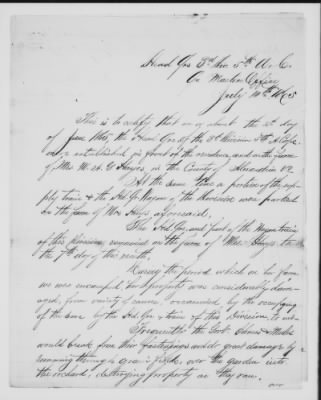 Head Qrs 3rd Div. 5th A. C.
Qr Masters Office
July 14th 1865
This is to certify that on or about the 1st day
of June 1865, the Head Qrs of the 3rd Division 5th A Corps
was established in front of the residence, and on the farm
of Mrs M. A. G Hayes, in the County of Alexandria Va
At the same time a portion of the sup-
ply train & the Hd Qr Wagons of the Division were parked
on the farm of Mrs Hays aforesaid.
The Hd Qrs, and part of the Wagon train
of this Division, remained on the farm of Mrs Hays to
the 7th day of this month.
During the period which on her farm
we were encamped, her property was considerably dam-
aged, from variety of causes occasioned by the occupying
of the same by the Hd Qrs & train of this Division, to wit
Frequently the Govt Horses & Mules
would break from their fastenings and do great damage by
running through grain fields, over the garden into
the orchard, destroying property as they ran.
over